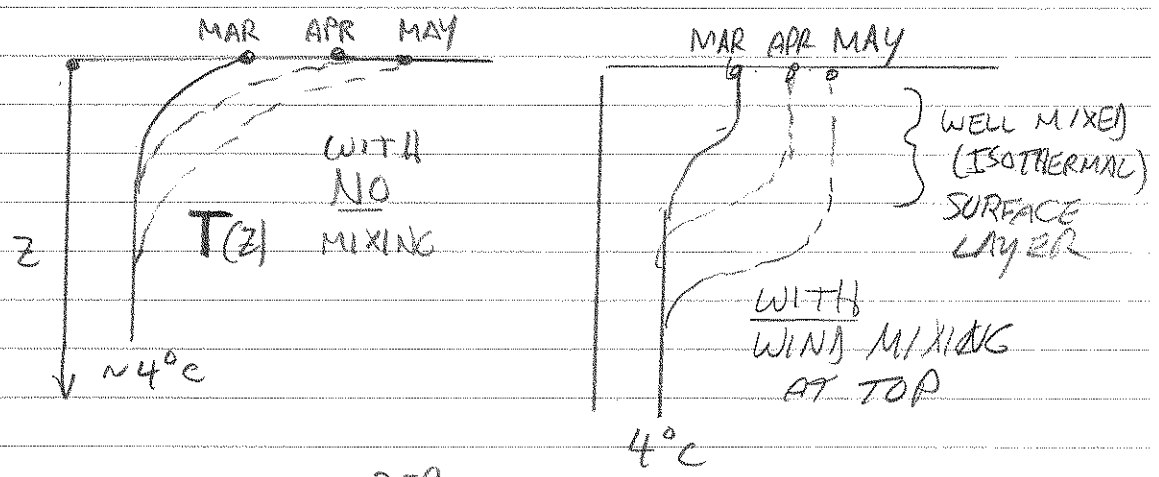 MAR APR MAY
WITH
NO
MIXING
T(z)
Z
~4°C
MAR APR MAY
WELL MIXED
(ISOTHERMAL)
SURFACE
LAYER
WITH
WIND MIXING
AT TOP
4°C